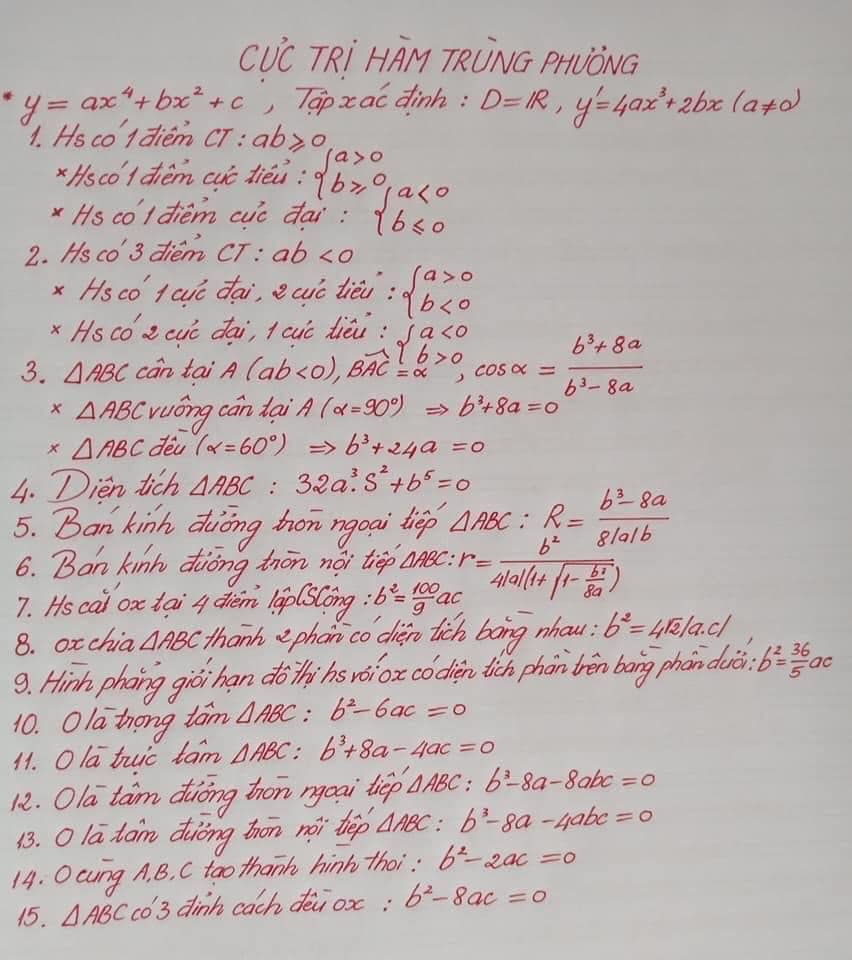 CỰC TRỊ HÀM TRÙNG PHƯƠNG
* y = ax⁴ + bx² + c , Tập xác định : D = ℝ , y' = 4ax³ + 2bx (a ≠ 0)
1. Hs có 1 điểm CT : ab ≥ 0
× Hs có 1 điểm cực tiểu : { a > 0
b ≥ 0
× Hs có 1 điểm cực đại : { a < 0
b ≤ 0
2. Hs có 3 điểm CT : ab < 0
× Hs có 1 cực đại, 2 cực tiểu : { a > 0
b < 0
× Hs có 2 cực đại, 1 cực tiểu : { a < 0
b > 0
3. ΔABC cân tại A (ab < 0), BAC = α , cos α = (b³ + 8a)/(b³ − 8a)
× ΔABC vuông cân tại A (α = 90°) ⇒ b³ + 8a = 0
× ΔABC đều (α = 60°) ⇒ b³ + 24a = 0
4. Diện tích ΔABC : 32a³.S² + b⁵ = 0
5. Bán kính đường tròn ngoại tiếp ΔABC : R = (b³ − 8a)/(8|a|b)
6. Bán kính đường tròn nội tiếp ΔABC : r = b²/(4|a|(1 + √(1 − b³/8a)))
7. Hs cắt ox tại 4 điểm lập CSCộng : b² = 100/9 ac
8. ox chia ΔABC thành 2 phần có diện tích bằng nhau : b² = 4√2|a.c|
9. Hình phẳng giới hạn đồ thị hs với ox có diện tích phần trên bằng phần dưới : b² = 36/5 ac
10. O là trọng tâm ΔABC : b² − 6ac = 0
11. O là trực tâm ΔABC : b³ + 8a − 4ac = 0
12. O là tâm đường tròn ngoại tiếp ΔABC : b³ − 8a − 8abc = 0
13. O là tâm đường tròn nội tiếp ΔABC : b³ − 8a − 4abc = 0
14. O cùng A, B, C tạo thành hình thoi : b² − 2ac = 0
15. ΔABC có 3 đỉnh cách đều ox : b² − 8ac = 0